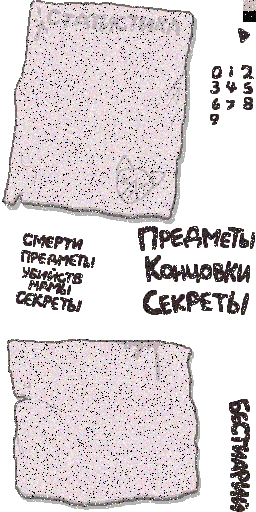 СТАТИСТИКА
0 1 2
3 4 5
6 7 8
9
СМЕРТИ
ПРЕДМЕТЫ
УБИЙСТВ
МАМЫ
СЕКРЕТЫ
ПРЕДМЕТЫ
КОНЦОВКИ
СЕКРЕТЫ
БЕСТИАРИЙ